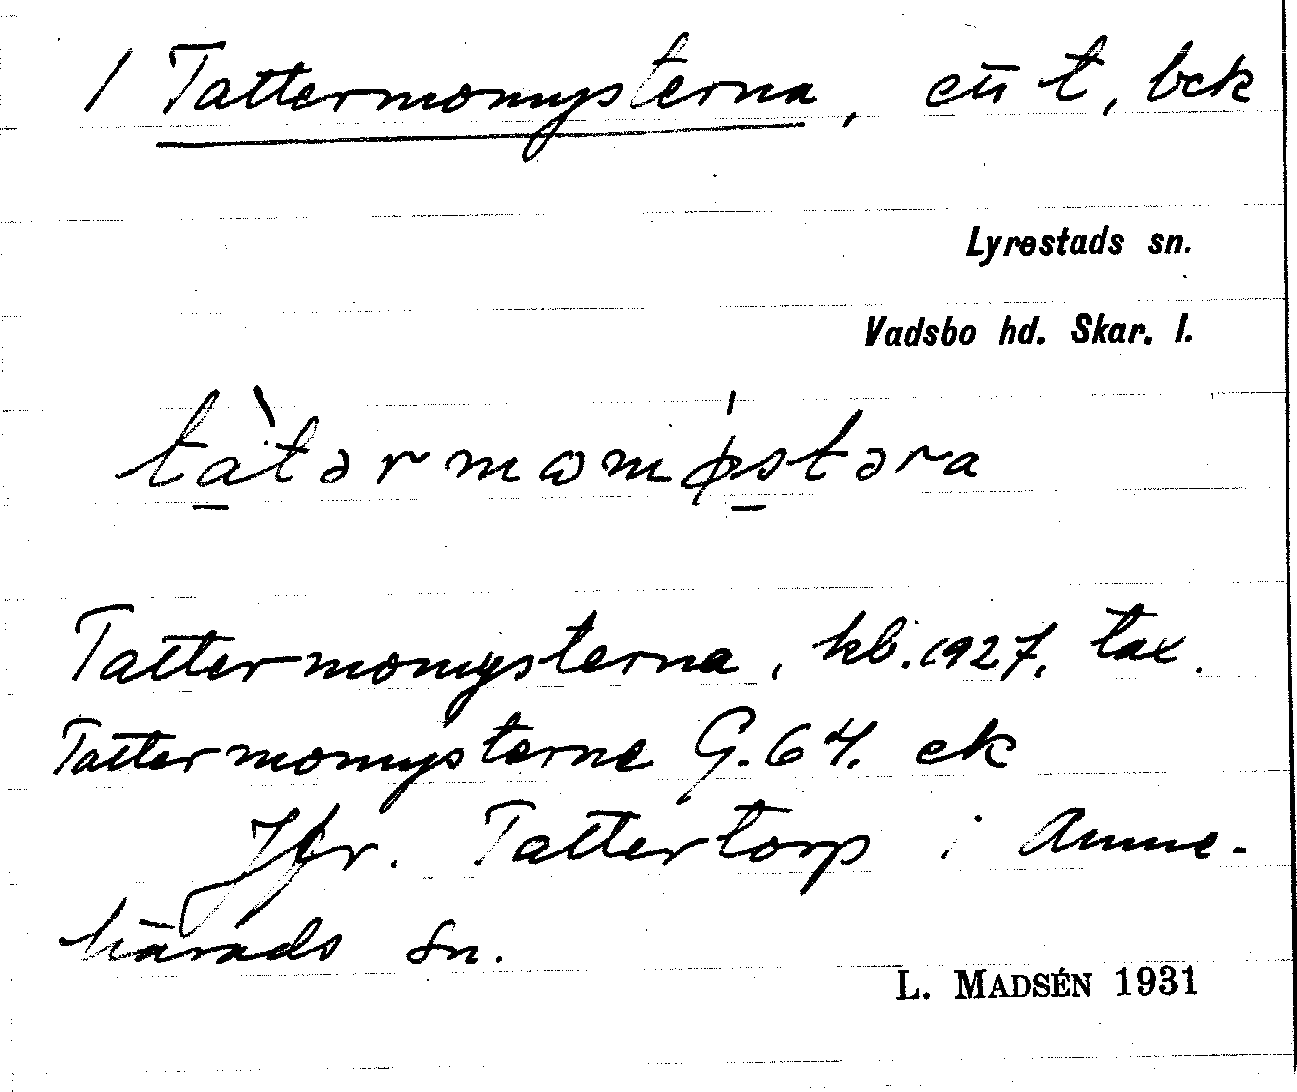 / Tattermomysterna, en t, bek
Lyrestads sn.
Vadsbo hd. Skar. l.
tà̱tərmɷmø̍s̱təra
Tattermomysterna, kb. 1927, tax.
Tattermomysterne G. 64. ek
Jfr. Tattertorp i Amne-
härads sn.
L. MADSÉN 1931